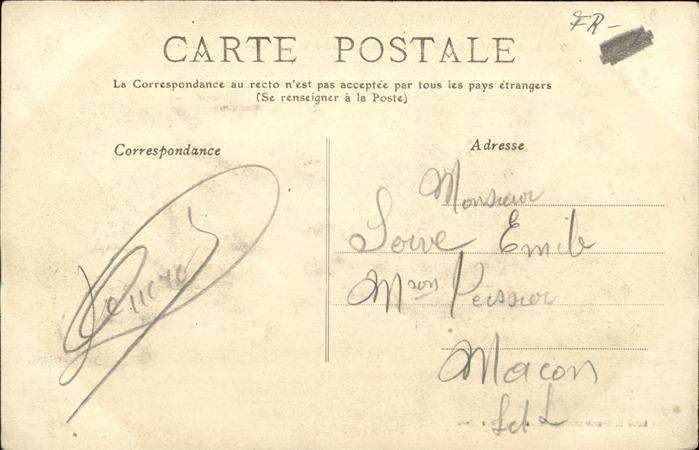 FR-
CARTE POSTALE
La Correspondance au recto n'est pas acceptée par tous les pays étrangers
(Se renseigner à la Poste)
Correspondance
Adresse
Monsieur
Emile
Mson
Macon
S et L